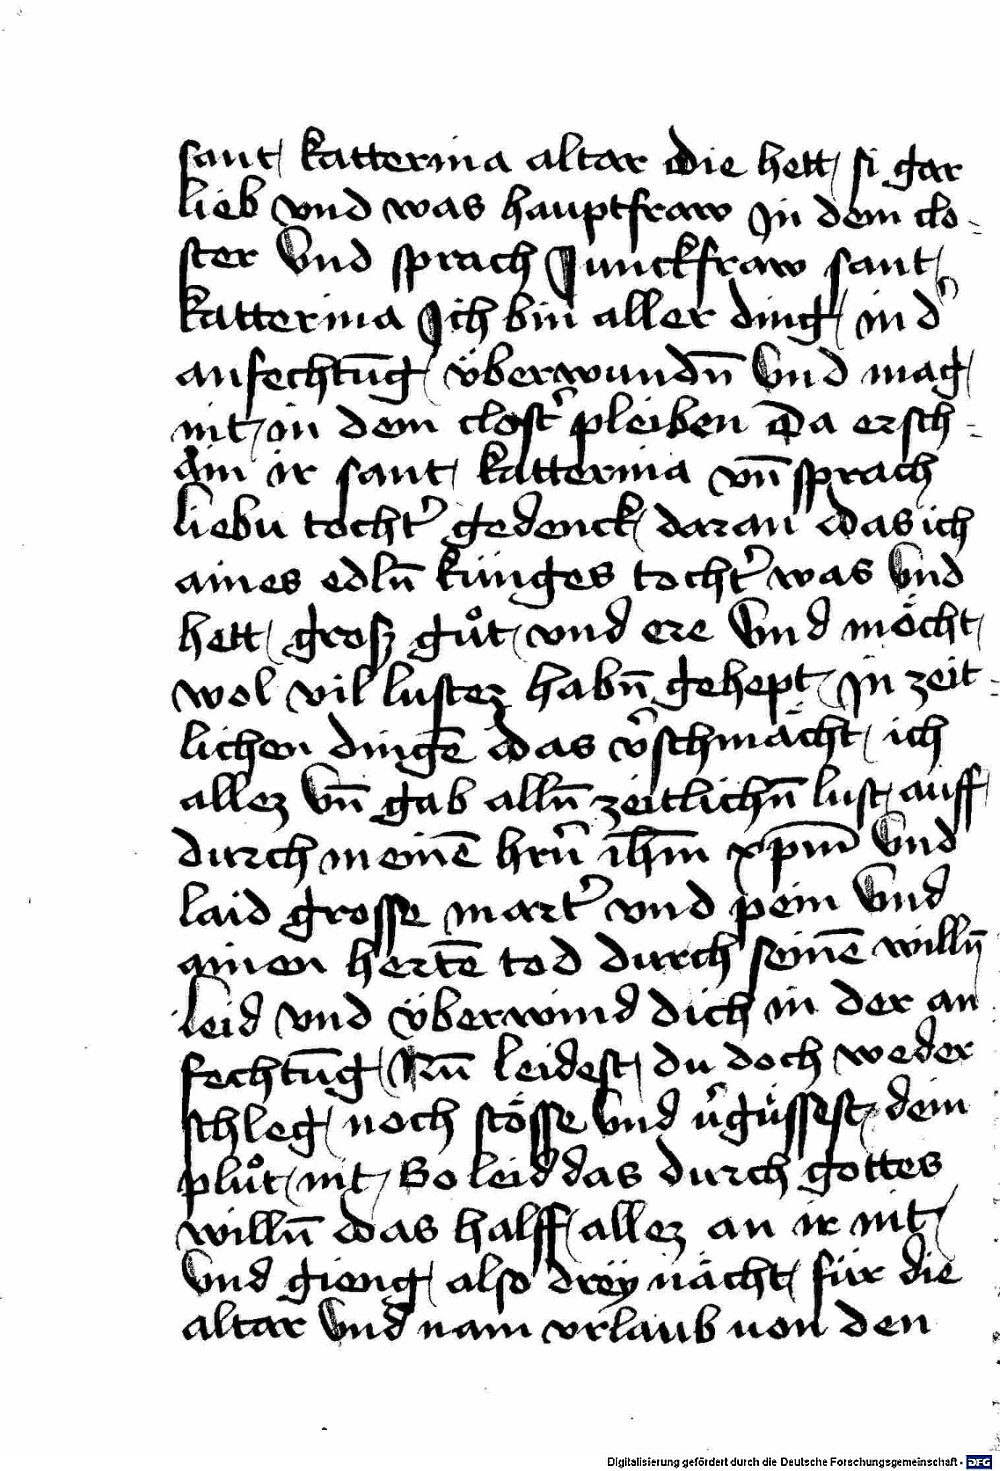 sant katterina altar die hett si gar
lieb vnd was hauptfraw Jn dem clo-
ster Vnd sprach Junckfraw sant
katterina Jch bin aller ding in d̾
anfechtūg überwundn̄ Vnd mag
nit in dem clost̾ pleiben Da ersch-
ain ir sant katterina vn̄ sprach
liebu tocht̾ gedenck daran das ich
aines edln̄ künges tocht̾ was Vnd
hett grosz gůt vnd ere Vnd möcht
wol vil lustez habn̄ gehept Jn zeit-
lichen dingē das v̾schmächt ich
allez Vn̄ gab alln̄ zeitlichn̄ lust auff
durch meinē hrn̄ ihm̄ xpm̄ Vnd
laid grosse mart̾ vnd pein Vnd
ainen hertē tod durch seinē willn̄
Leid vnd überwind dich in der an
fechtūg Nun̄ leidest du doch weder
schleg noch stösse Vnd v̾güssest dein
plůt nit So leid das durch gottes
willn̄ das halff allez an ir nit
Vnd gieng also drey nächt für die
altar Vnd nam vrlaub von den
Digitalisierung gefördert durch die Deutsche Forschungsgemeinschaft - DFG